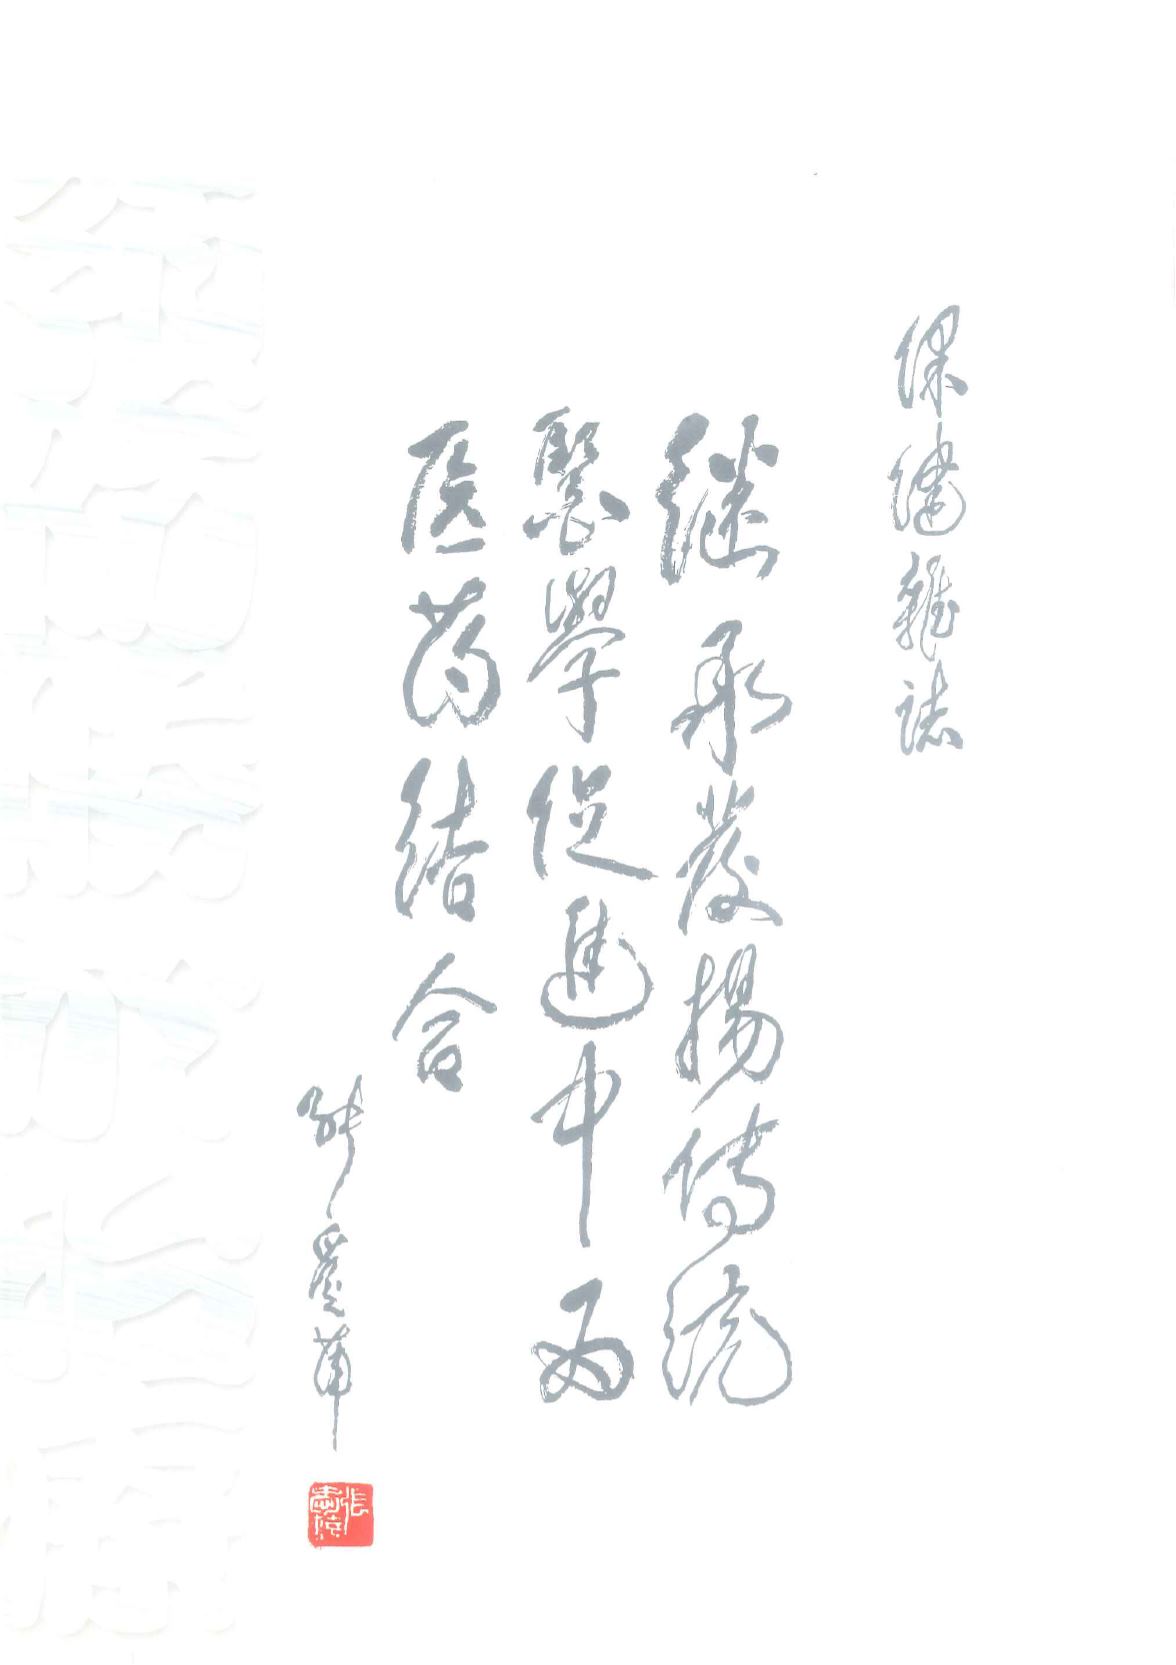 保健雜誌
继承發揚傳統
醫學促進中西
医药结合
張